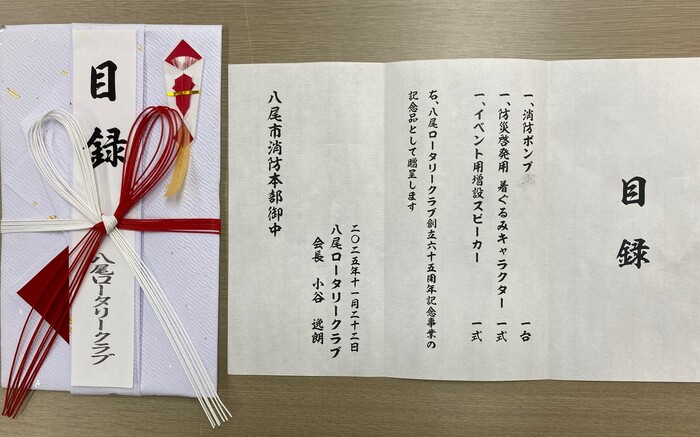 目録
八尾ロータリークラブ
目録
一、消防ポンプ 一台
一、防災啓発用 着ぐるみキャラクター 一式
一、イベント用増設スピーカー 一式
右、八尾ロータリークラブ創立六十五周年記念事業の
記念品として贈呈します
二〇二五年十一月二十二日
八尾ロータリークラブ
会長 小谷 逸朗
八尾市消防本部御中